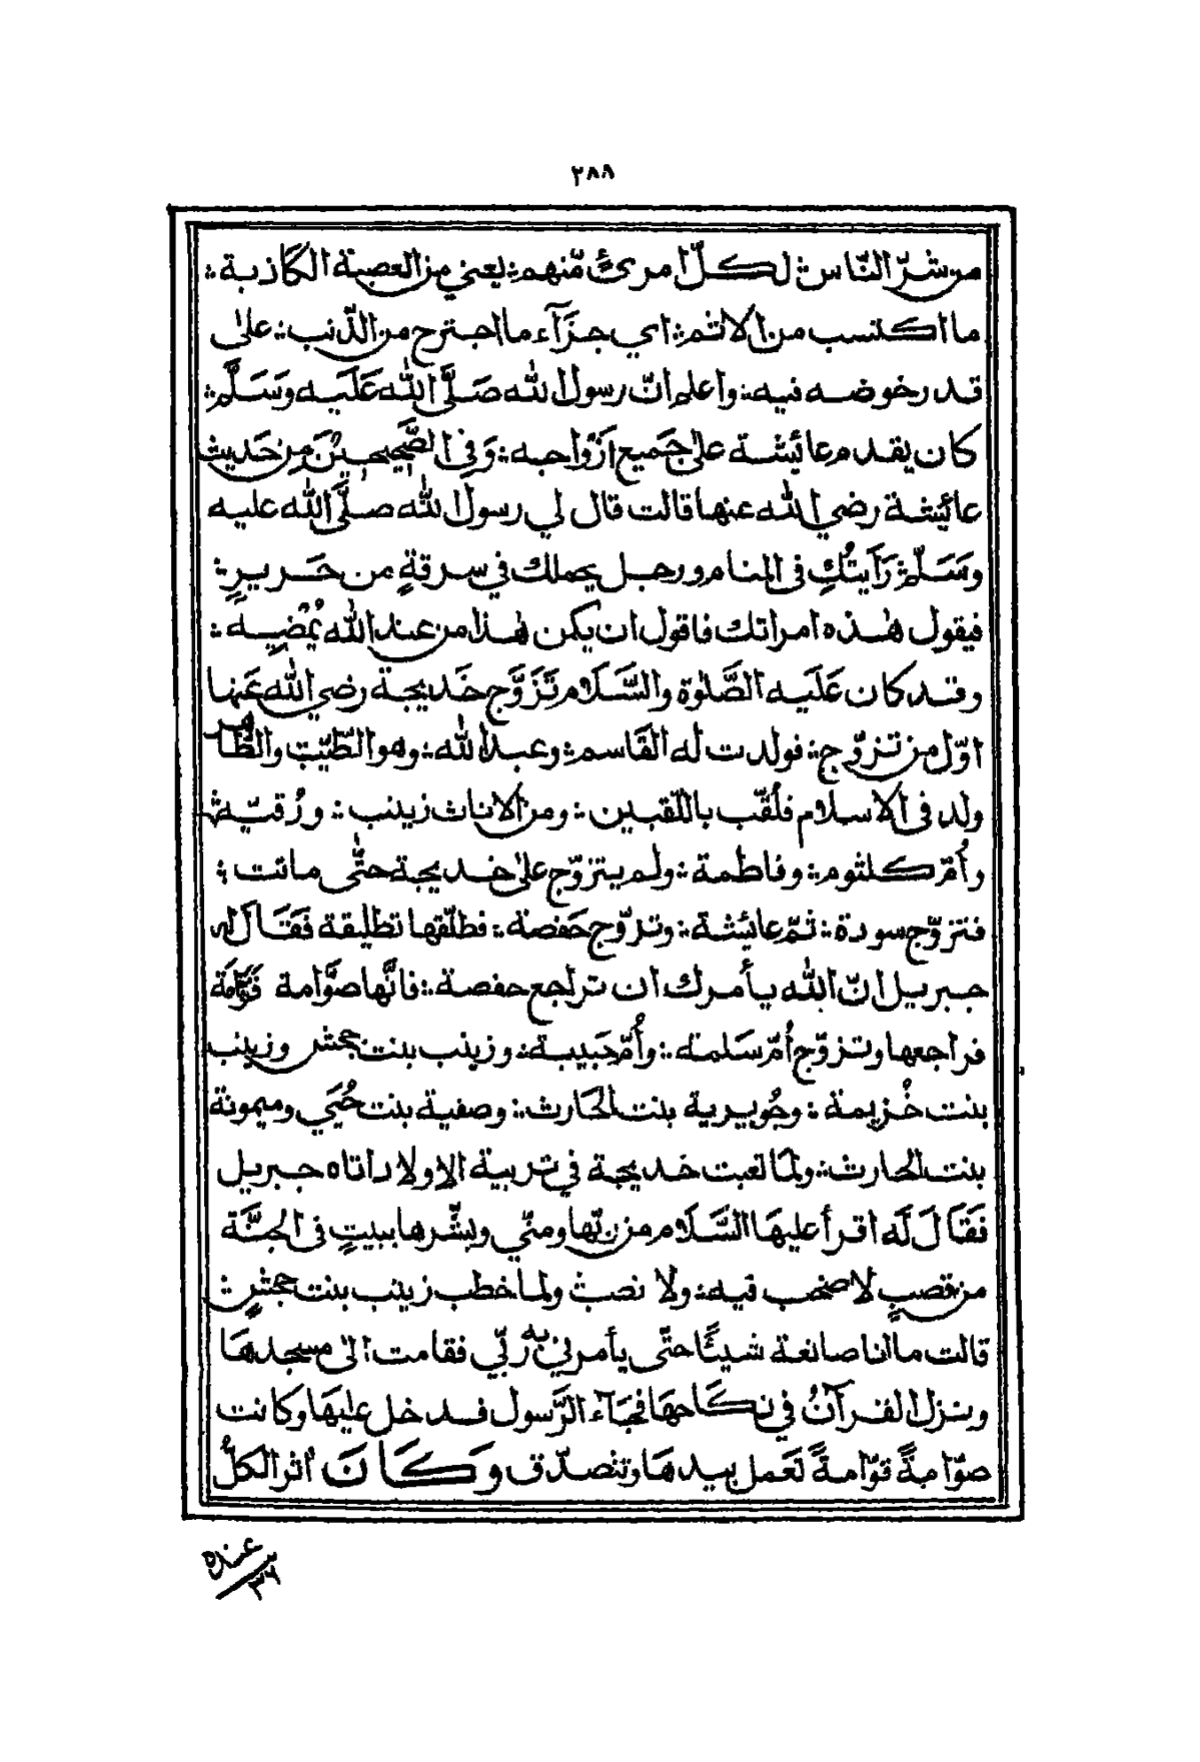 ٢٨٨
من شرّ الناس ؞ لكلّ امرئٍ مّنهم ؞ يعني من العصبة الكاذبة ؞
ما اكتسب من الاثم ؞ اي جزآء ما اجترح من الذّنب ؞ على
قدر خوضه فيه ؞ واعلم انّ رسول الله صَلَّى الله عَلَيه وَسَلَّم ؞
كان يقدم عائيشة على جَميع اَزْواجه ؞ وَفِى الصَّحِيحَيْن مِن حَديث
عائيشة رضي الله عنها قالت قال لي رسول الله صلَّى الله عليه
وسَلّم ؞ رَاَيتُكِ فى المنام ورجل يحملك في سرقةٍ من حَريرٍ ؞
فيقول هٰذه امراتك فاقول ان يكن هٰذا من عند الله يُمْضِيه ؞
وقد كان عَلَيه الصَّلٰوة والسَّلام تَزَوَّج خَديجة رضي الله عَنها
اوّل من تزوّج ؞ فولدت له القَاسم ؞ وعبد الله ؞ وهو الطّيّب والطَّاهر
ولد فى الاسلام فلُقّب باللّقبين ؞ ومن الاناث زينب ؞ ورُقيّة
وأمّ كلثوم ؞ وفاطمة ؞ ولم يتزوّج على خديجة حتّٰى ماتت ؞
فتزوّج سودة ؞ ثمّ عائيشة ؞ وتزوّج حَفصة ؞ فطلّقها تطليقة فَقَال له
جبريل انّ الله يأمرك ان تراجع حفصة ؞ فانّها صوَّامة قَوَّامَة
فراجعها وتزوّج أمّ سَلمة ؞ وأُمّ حَبيبة ؞ وزينب بنت جحش وزينب
بنت خُزيمة ؞ وجُويرية بنت الحَارث ؞ وصفية بنت حُيَي وميمونة
بنت الحارث ؞ ولمّا تعبت خديجة في تربية الاولاد اتاه جبريل
فَقَالَ لَه اقرأ عليهَا السَّلام من ربّها ومنّي وبشّرها ببيتٍ فى الجنَّة
من قصبٍ لا صخب فيه ؞ ولا نصب ولما خطب زينب بنت جحشٍ ؞
قالت ما انا صانعة شيئًا حتّى يأمرني به ربّي فقامت الى مسجدهَا
ونزل القرآنُ في نكَاحهَا فجَآء الرَّسول فدخل عليهَا وكانت
صوّامةً قوّامةً تَعمل بيدهَا وتتصدّق وَكَانَ اثر الكلّ
عنده
٣٦